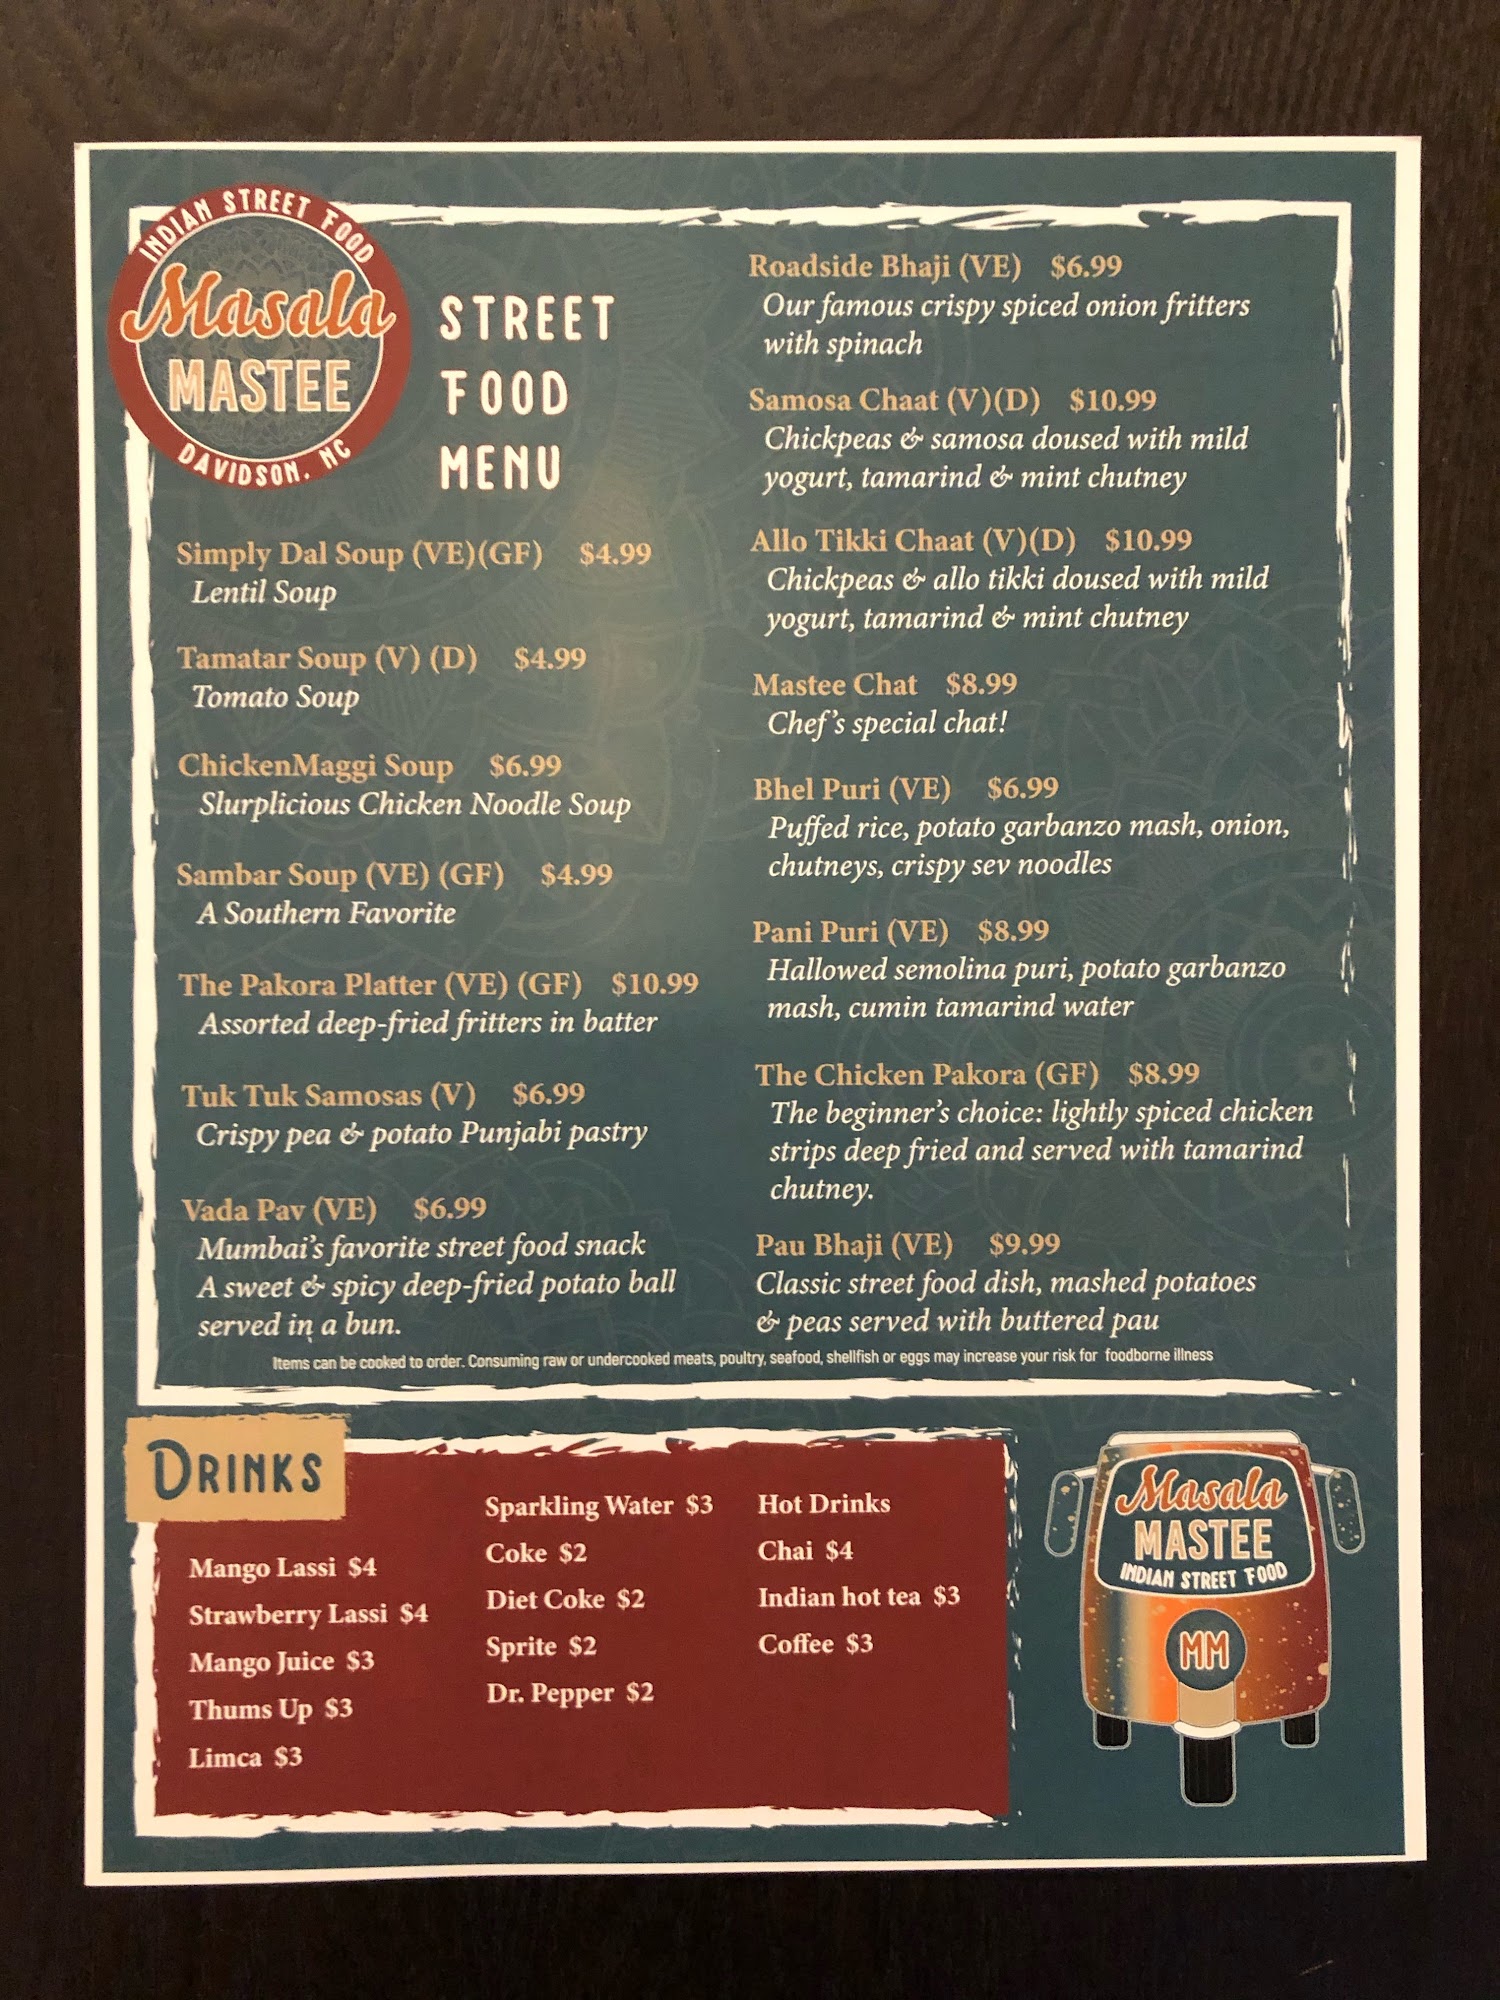 INDIAN STREET FOOD
Masala
MASTEE
DAVIDSON, NC
STREET
FOOD
MENU
Simply Dal Soup (VE)(GF) $4.99
Lentil Soup
Tamatar Soup (V) (D) $4.99
Tomato Soup
ChickenMaggi Soup $6.99
Slurplicious Chicken Noodle Soup
Sambar Soup (VE) (GF) $4.99
A Southern Favorite
The Pakora Platter (VE) (GF) $10.99
Assorted deep-fried fritters in batter
Tuk Tuk Samosas (V) $6.99
Crispy pea & potato Punjabi pastry
Vada Pav (VE) $6.99
Mumbai's favorite street food snack
A sweet & spicy deep-fried potato ball
served in a bun.
Roadside Bhaji (VE) $6.99
Our famous crispy spiced onion fritters
with spinach
Samosa Chaat (V)(D) $10.99
Chickpeas & samosa doused with mild
yogurt, tamarind & mint chutney
Allo Tikki Chaat (V)(D) $10.99
Chickpeas & allo tikki doused with mild
yogurt, tamarind & mint chutney
Mastee Chat $8.99
Chef's special chat!
Bhel Puri (VE) $6.99
Puffed rice, potato garbanzo mash, onion,
chutneys, crispy sev noodles
Pani Puri (VE) $8.99
Hallowed semolina puri, potato garbanzo
mash, cumin tamarind water
The Chicken Pakora (GF) $8.99
The beginner's choice: lightly spiced chicken
strips deep fried and served with tamarind
chutney.
Pau Bhaji (VE) $9.99
Classic street food dish, mashed potatoes
& peas served with buttered pau
Items can be cooked to order. Consuming raw or undercooked meats, poultry, seafood, shellfish or eggs may increase your risk for foodborne illness
DRINKS
Mango Lassi $4
Strawberry Lassi $4
Mango Juice $3
Thums Up $3
Limca $3
Sparkling Water $3
Coke $2
Diet Coke $2
Sprite $2
Dr. Pepper $2
Hot Drinks
Chai $4
Indian hot tea $3
Coffee $3
Masala
MASTEE
INDIAN STREET FOOD
MM